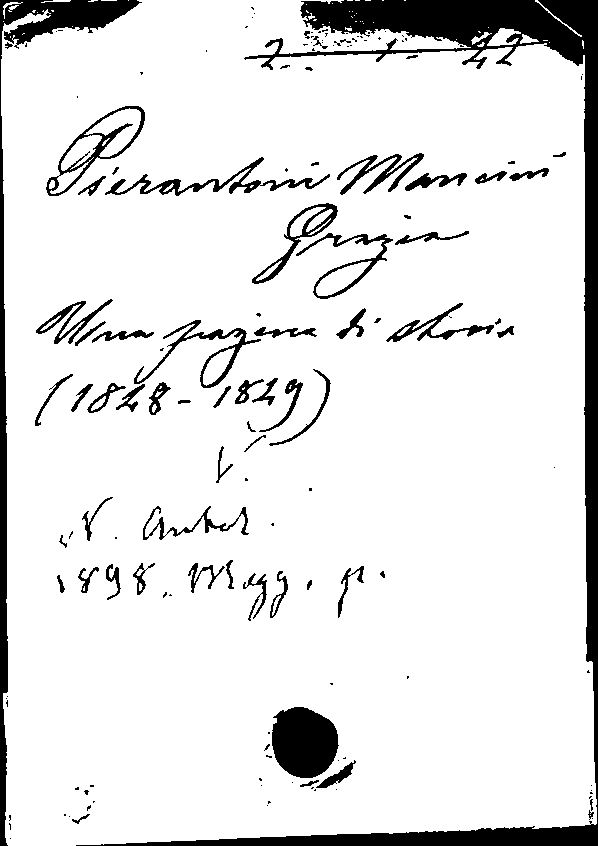 2. 1. 22
Pierantoni Mancini
Grazia
Una pagina di storia
(1848-1849)
V.
N. Antol.
1898. Magg. p.